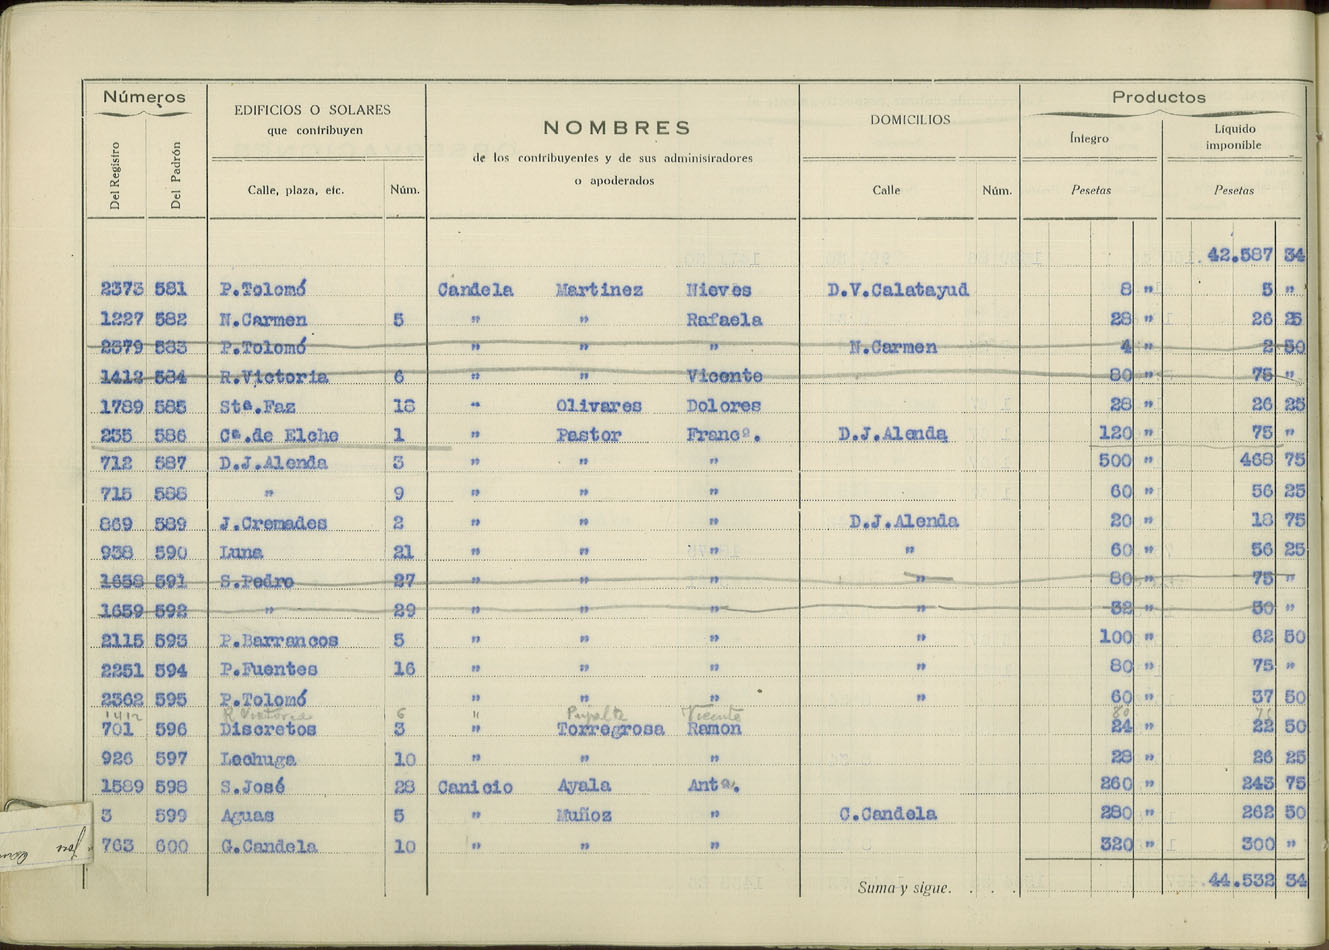 Números
EDIFICIOS O SOLARES
que contribuyen
NOMBRES
de los contribuyentes y de sus administradores
o apoderados
DOMICILIOS
Productos
Del Registro
Del Padrón
Calle, plaza, etc.
Núm.
Calle
Núm.
Íntegro
Pesetas
Líquido
imponible
Pesetas
42.587 34
2373 581 P.Tolomó Candela Martinez Nieves D.V.Calatayud 8 " 5 "
1227 582 N.Carmen 5 " " Rafaela 28 " 26 25
2379 583 P.Tolomó " " " N.Carmen 4 " 2 50
1412 584 R.Victoria 6 " " Vicente 80 " 75 "
1789 585 Stª.Faz 18 " Olivares Dolores 28 " 26 25
255 586 Cª.de Elche 1 " Pastor Francº. D.J.Alenda 120 " 75 "
712 587 D.J.Alenda 3 " " " 500 " 468 75
715 588 " 9 " " " 60 " 56 25
869 589 J.Cremades 2 " " " D.J.Alenda 20 " 18 75
938 590 Luna 21 " " " " 60 " 56 25
1658 591 S.Pedro 27 " " " " 80 " 75 "
1659 592 " 29 " " " " 32 " 30 "
2115 593 P.Barrancos 5 " " " " 100 " 62 50
2251 594 P.Fuentes 16 " " " " 80 " 75 "
2362 595 P.Tolomó " " " " 60 " 37 50
1412 R Victoria 6 " Vicente 80
701 596 Discretos 3 " Torregrosa Ramon 24 " 22 50
926 597 Lechuga 10 " " " 28 " 26 25
1589 598 S.José 28 Canicio Ayala Antº. 260 " 243 75
3 599 Aguas 5 " Muñoz " C.Candela 280 " 262 50
763 600 G.Candela 10 " " " 320 " 300 "
Suma y sigue. . . . 44.532 34